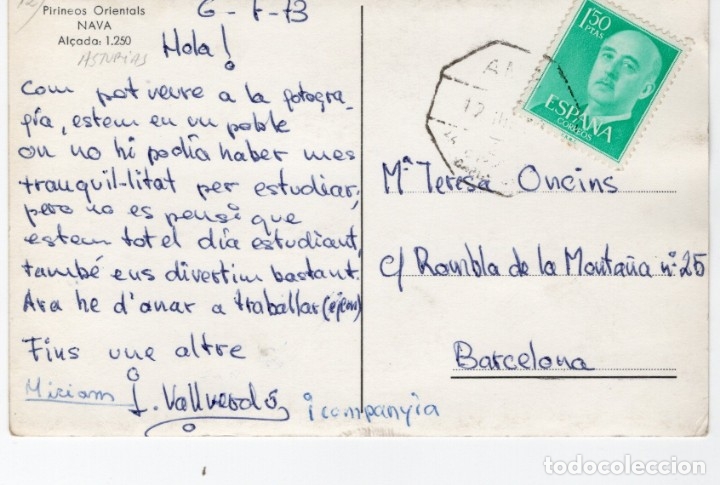 Pirineos Orientals
NAVA
Alçada: 1.250
ASTURIAS
6-7-73
Hola!
Com pot veure a la fotogra-
fía, estem en un poble
on no hi podía haber mes
tranquil-litat per estudiar,
pero no es pensi que
estem tot el día estudiant,
també ens divertim bastant.
Ara he d'anar a traballar (ejem)
Fins une altre
Miriam J. Vallverdú, i companyia
1'50
PTAS
ESPAÑA
CORREOS
Mª Teresa Oncins
c/ Rambla de la Montaña nº 25
Barcelona
todocoleccion.net